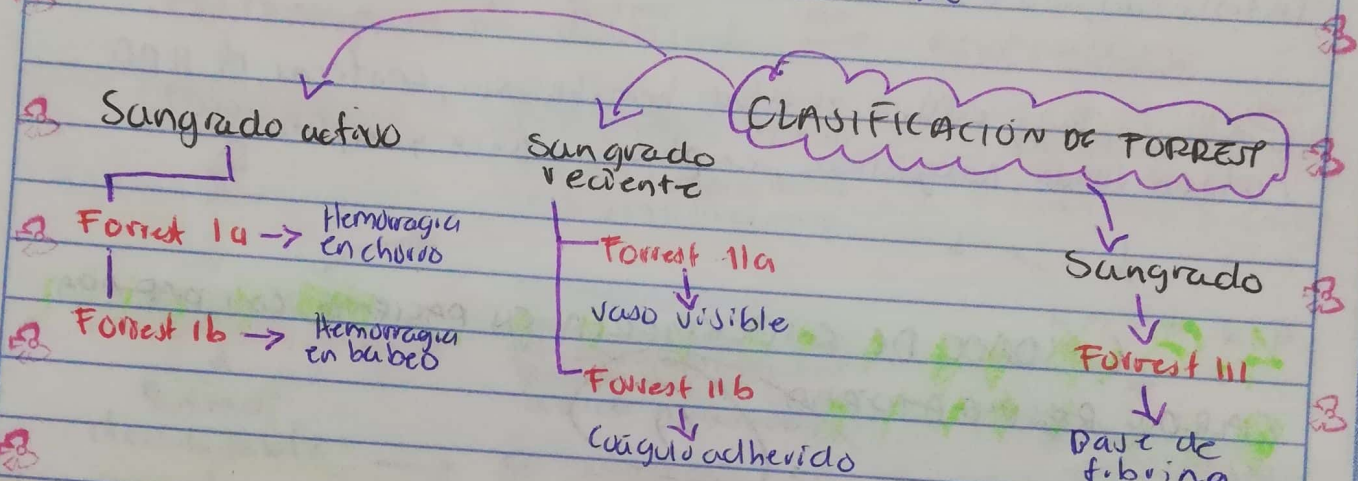 CLASIFICACIÓN DE FORREST
Sangrado activo
Forrest Ia → Hemorragia
en chorro
Forrest Ib → Hemorragia
en babeo
Sangrado
reciente
Forrest IIa
vaso visible
Forrest IIb
Coágulo adherido
Sangrado
Forrest III
Base de
fibrina